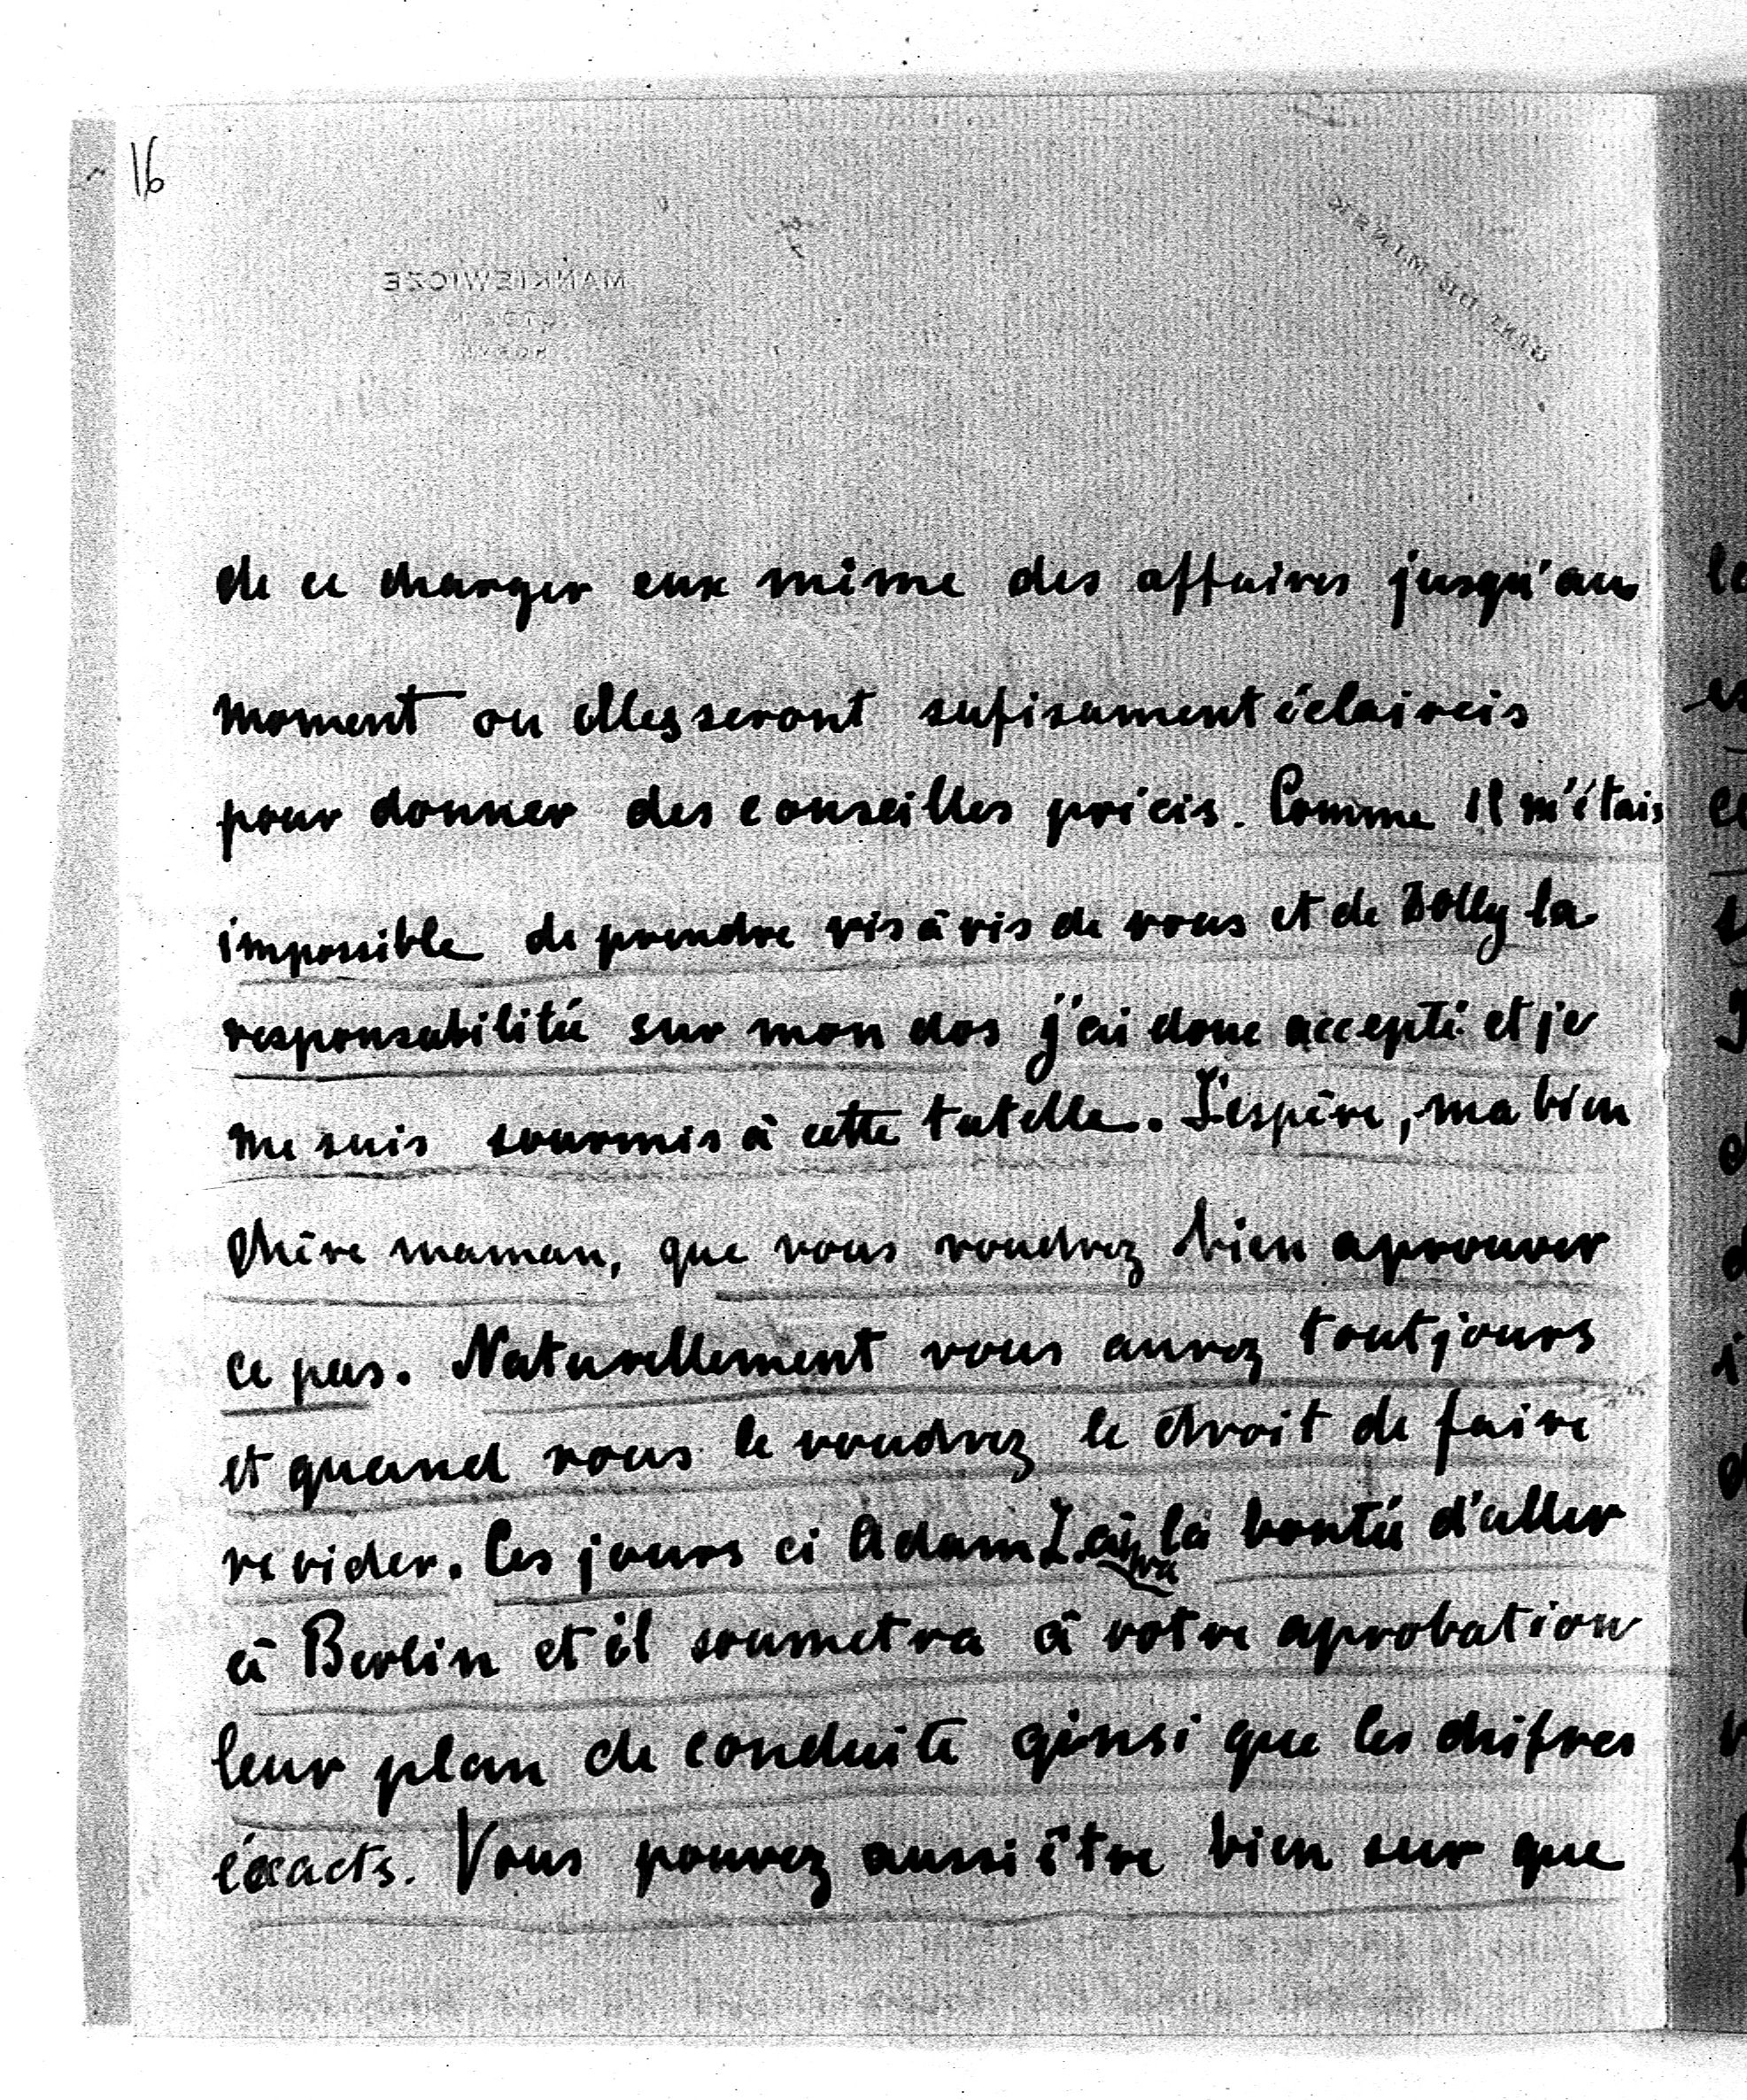 16
MANKIEWICZE
de ce charger eux même des affaires jusqu'au
moment ou elles seront sufisament éclaircis
pour donner des conseilles précis. Comme il m'étais
impossible de prendre vis à vis de vous et de Dolly la
responsabilitée sur mon dos j'ai donc accepté et je
me suis sourmis à cette tutelle. J'espère, ma bien
Chère maman, que vous voudrez bien aprouver
ce pas. Naturellement vous aurez toutjours
et quand vous le voudrez le droit de faire
revider. Ces jours ci Adam Z. aura la bontée d'aller
à Berlin et il soumetra à votre aprobation
leur plan de conduite ainsi que les chifres
éxacts. Vous pouvez aussi être bien sur que